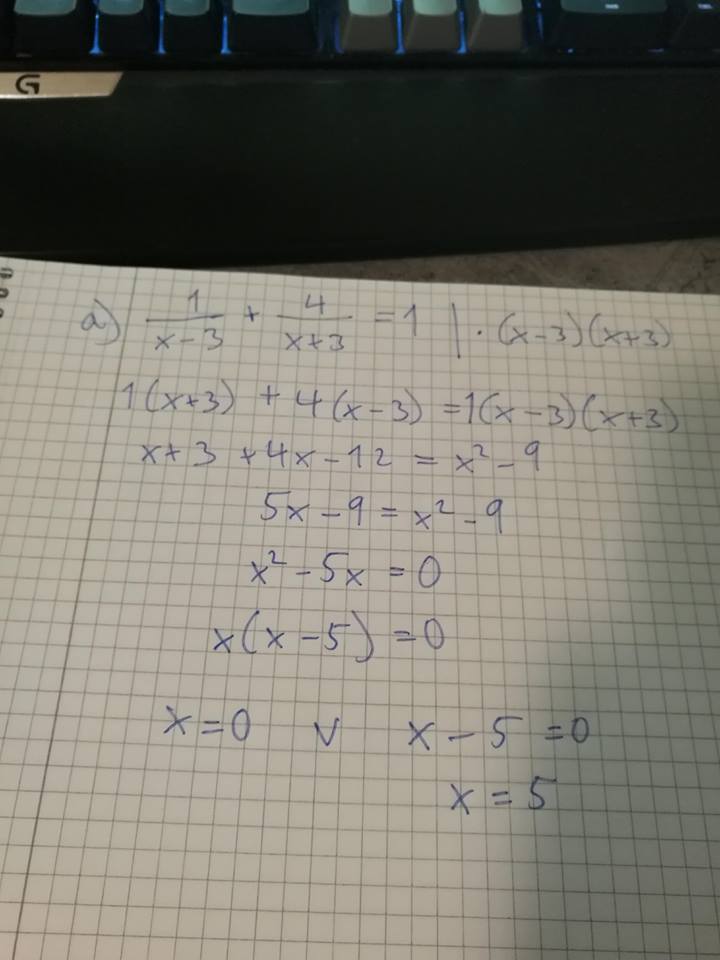 G
a) 1/(x-3) + 4/(x+3) = 1 | · (x-3)(x+3)
1(x+3) + 4(x-3) = 1(x-3)(x+3)
x+3 +4x-12 = x² - 9
5x - 9 = x² - 9
x² - 5x = 0
x(x-5) = 0
x=0 v x-5=0
x = 5